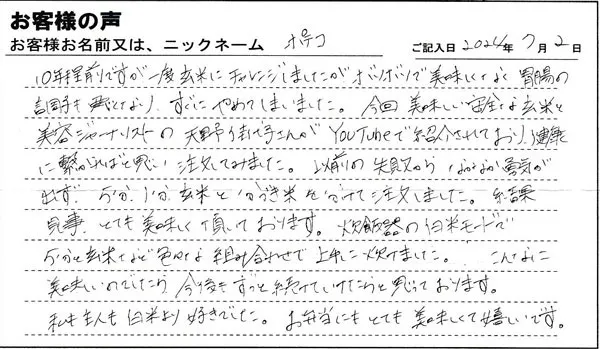 お客様の声
お客様お名前又は、ニックネーム ポテコ ご記入日 2024年 7月 2日
10年程前ですが一度玄米にチャレンジしましたがボソボソで美味しくなく胃腸の
調子も悪くなり、すぐにやめてしまいました。今回 美味しい安全な玄米と
美容ジャーナリストの 天野佳代子さんが YouTubeで紹介されており、健康
に繋がればと思い 注文してみました。以前の失敗から なかなか勇気が
出ず、5分、1分、玄米と 分づき米を分けて注文しました。結果
見事、とても美味しく頂いております。炊飯器の白米モードで
5分と玄米など色々な組み合わせで上手に炊けました。こんなに
美味しいのでしたら 今後もずっと続けていけたらと思っております。
私も主人も白米より好きでした。お弁当にもとても美味しくて嬉しいです。